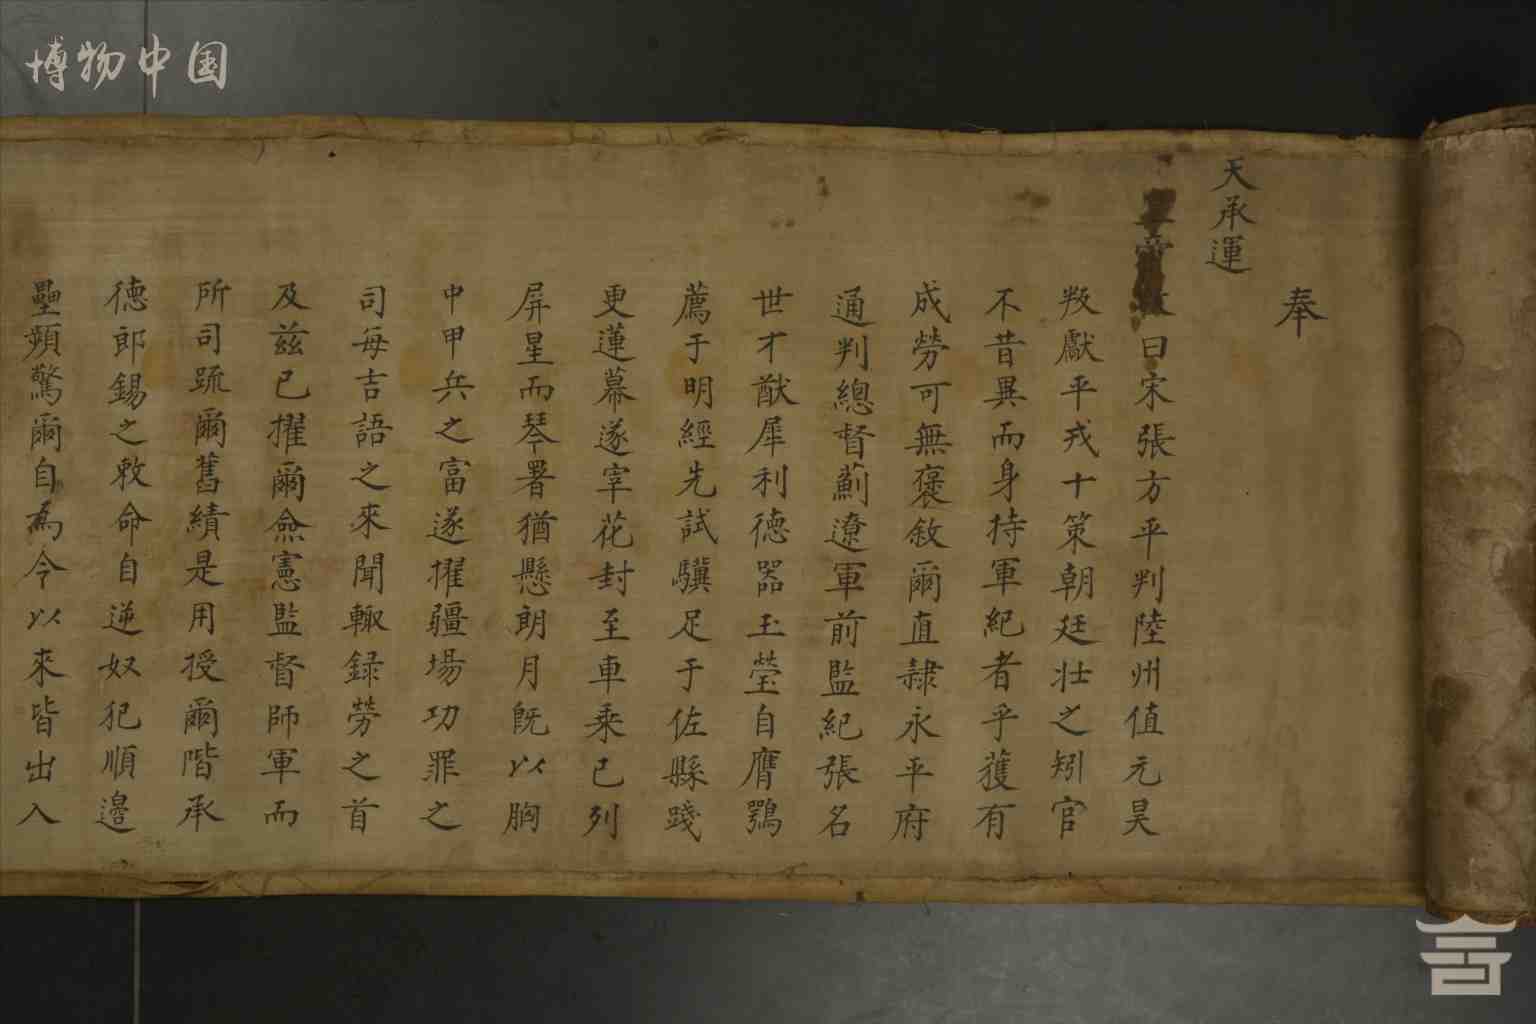 博物中国
奉
天承運
皇帝敕曰宋張方平判陸州值元昊
叛獻平戎十策朝廷壯之矧官
不昔異而身持軍紀者乎獲有
成勞可無褒敘爾直隸永平府
通判總督薊遼軍前監紀張名
世才猷犀利德器玉瑩自膺鶚
薦于明經先試驥足于佐縣踐
更蓮幕遂宰花封至車乘已列
屏星而琴署猶懸朗月既以胸
中甲兵之富遂擢疆場功罪之
司每吉語之來聞輙録勞之首
及茲已擢爾僉憲監督師軍而
所司疏爾舊績是用授爾階承
德郎錫之敕命自逆奴犯順邊
壘頻驚爾自為令以來皆出入